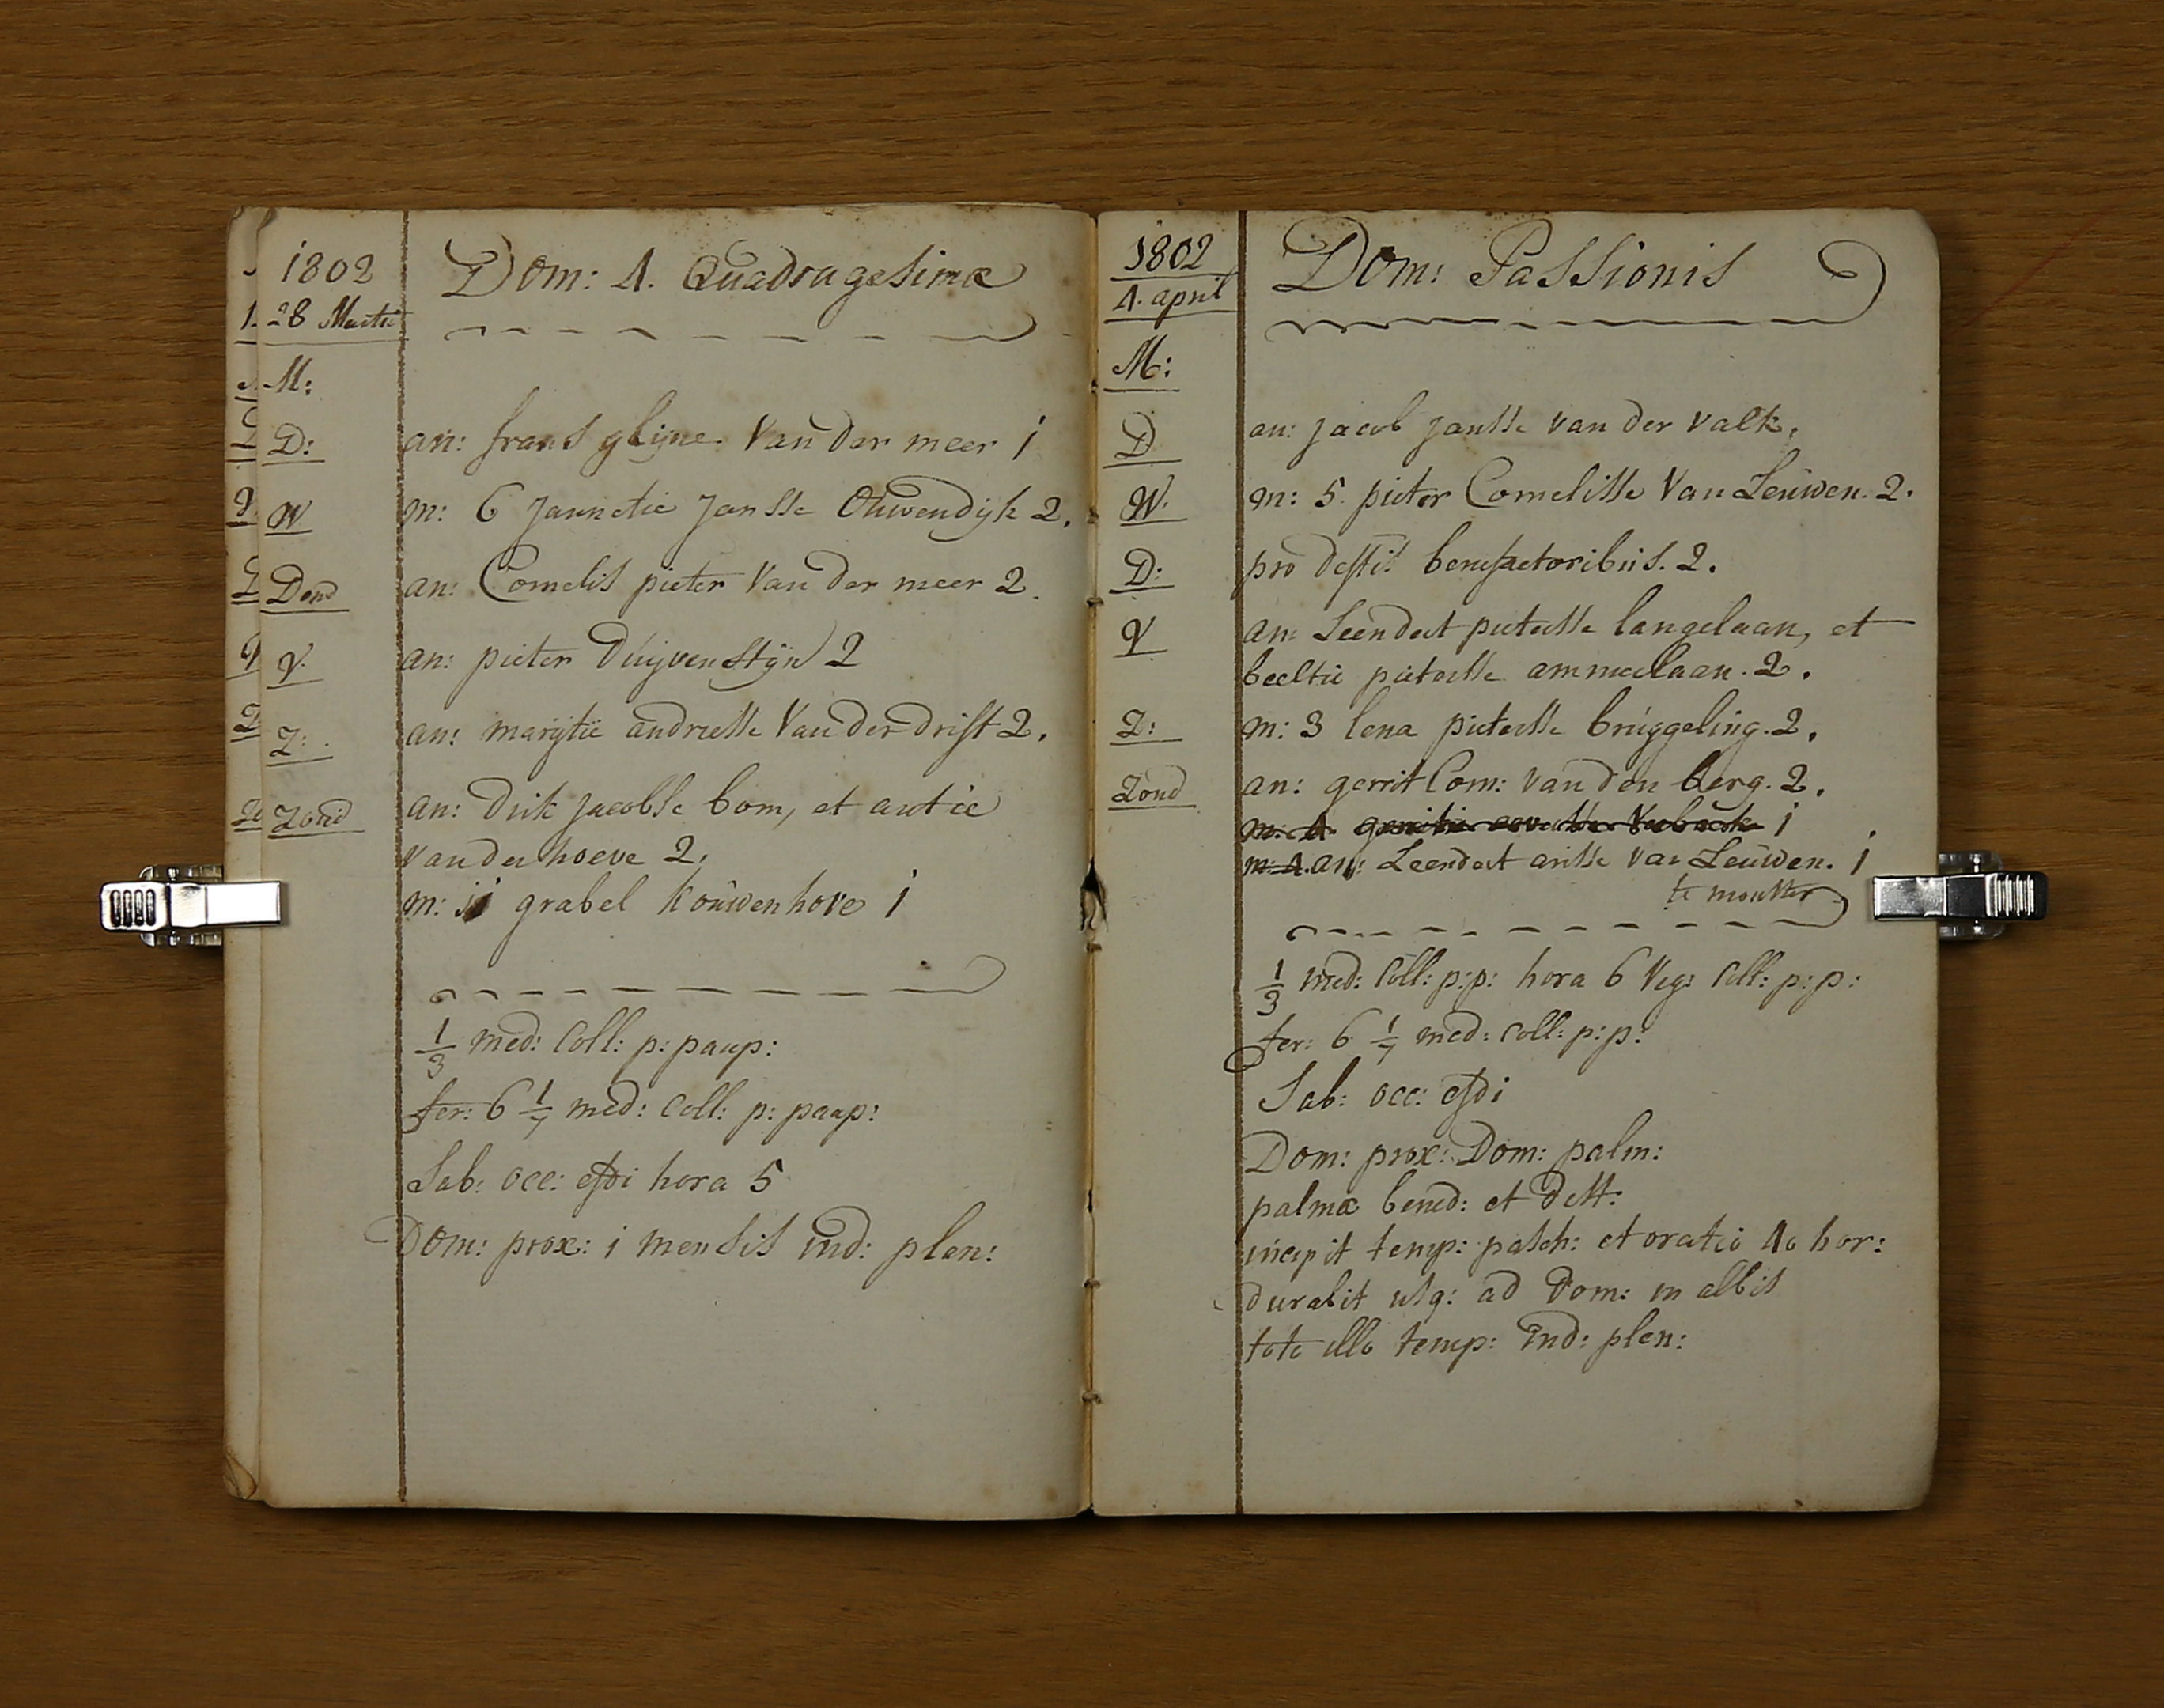 1802
28 Martii
Dom: 4. Quadragesimæ
M:
D: an: frans glijne Van der meer 1
W m: 6 Jannetie Jansse Ouwendijk 2.
Dond an: Cornelis pieter Van der meer 2.
V. an: pieter Duijvenstijn 2
Z: an: marijtie andriesse Van der drift 2.
Zond an: Dirk Jacobse bom, et antie
Van der hoeve 2.
m: grabel Kouwenhove 1
1/3 med: Coll: p: paup:
fer: 6 1/7 med: Coll: p: paup:
Sab: occ: esdi hora 5
Dom: prox: 1 mensis ind: plen:
1802
4. april
Dom: Passionis
M:
D an: Jacob Jansse van der Valk.
W. m: 5. pieter Cornelisse Van Leuwen. 2.
D: pro deftis benefactoribus. 2.
V an: Leendert pieterse langelaan, et
beeltie pieterse ammerlaan. 2.
Z: m: 3 lena pieterse bruggeling. 2.
Zond an: gerrit Corn: van den berg. 2.
m: 4. 1
m: 4. an: Leendert arisse van Leuwen. 1
te
1/3 med: Coll: p:p: hora 6 Vesp: Coll: p:p:
fer: 6 1/7 med: Coll: p:p:
Sab: occ: esdi
Dom: prox: Dom: palm:
palmæ bened: et dett:
incipit temp: pasch: et oratio 40 hor:
durabit usq: ad Dom: in albis
toto illo temp: ind: plen: